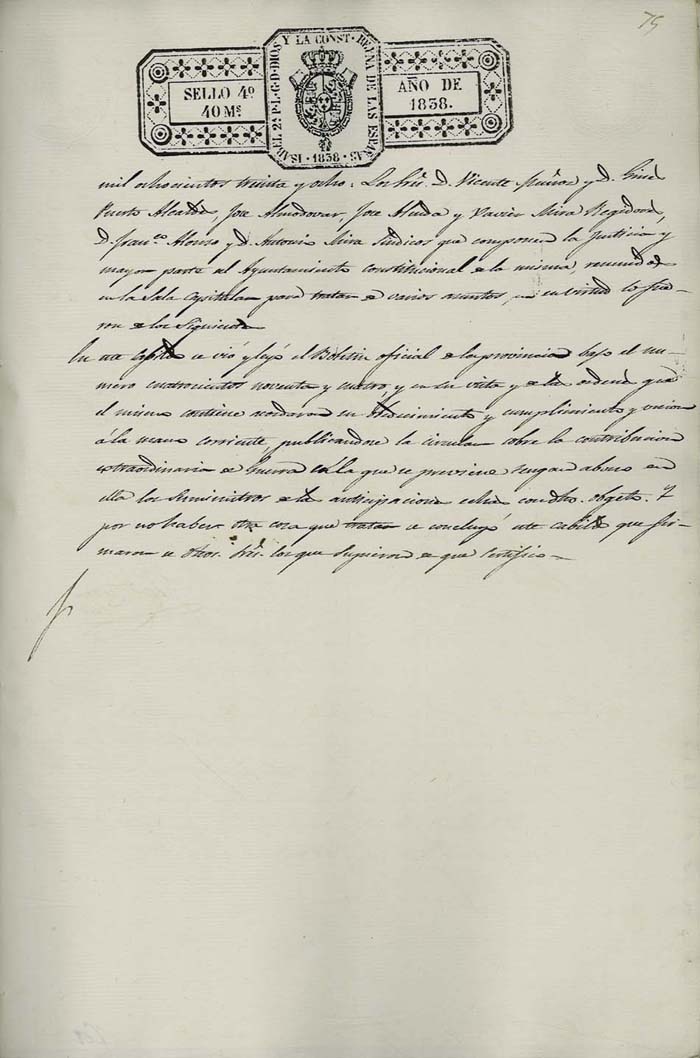 75
SELLO 4º
40 Ms.
ISABEL 2ª P.L.G.D.DIOS Y LA CONST. REYNA DE LAS ESPAÑAS
· 1838 ·
AÑO DE
1838.
mil ochocientos treinta y ocho: Los Sres. D. Vicente Muñoz y D. Ginés
Puerto Alcaldes, Jose Almodovar, Jose Alenda y Xavier Mira Regidores,
D. Franco. Alonso y D. Antonio Mira Sindicos que componen la Justicia y
mayor parte del Ayuntamiento constitucional de la misma, reunidos
en la Sala Capitular para tratar de varios asuntos, en su virtud lo fue-
ron de los siguientes
En este Cabildo se vió y leyó el Boletin oficial de la provincia bajo el nu-
mero cuatrocientos noventa y cuatro, y en su vista y de las ordenes que
el mismo contiene acordaron su obedecimiento y cumplimiento y
á la mano corriente, publicandose la circular sobre la contribucion
extraordinaria de Guerra en la que se previene tengan abono en
ella los Suministros de la anticipacion echa con dho. objeto. Y
por no haber otra cosa que tratar se concluyó este cabildo que fir-
maron dchos. Sres. los que supieron de que certifico =